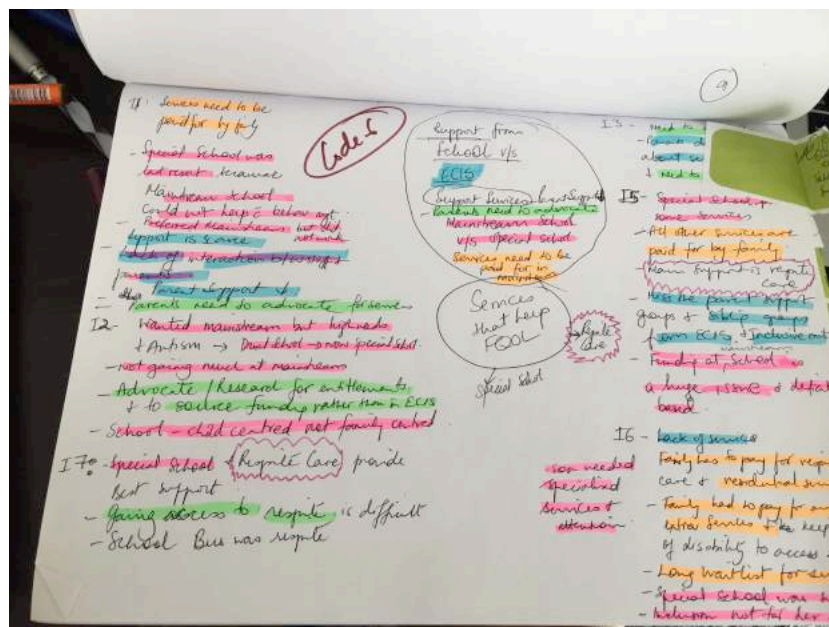 9
I1: Services need to be
paid for by family
- Special School was
last resort because
Mainstream School
Could not help c behav mgt.
- Preferred Mainstream but did
not work
- Support is scarce
- Lack of interaction b/w staff
parents
Parent Support
- Parents need to advocate for services
I2- Wanted mainstream but high needs
+ Autism → Dual School → now special school.
- Not going much at mainstream
- Advocate / Research for entitlements
+ to source funding rather than in ECIS
- School - child centred not family centred
I7: - Special School + Respite Care provide
Best support
- Going access to respite is difficult
- School Bus was respite
Codes
Support from
School v/s
ECIS
Support Services
- Parents need to advocate
Mainstream School
v/s special school
Services need to be
paid for in
mainstream
Services
that help
FQOL
Respite
Care
Special School
son needed
specialised
services +
attention
I3 - need to
- Parents d
about se
+ need to
I5- Special School +
some services
- All other services are
paid for by family
Main Support is respite
care
- Miss the parent support
groups + sibling groups
from ECIS + Inclusive
mainstream
- Funding at School is
a huge issue +
based.
I6 - Lack of services
- Family has to pay for respi
care + residential
- Family had to pay for
extra services + keep
of disability to access
- Long Waitlist for
- Special School was
- Inclusion not for her